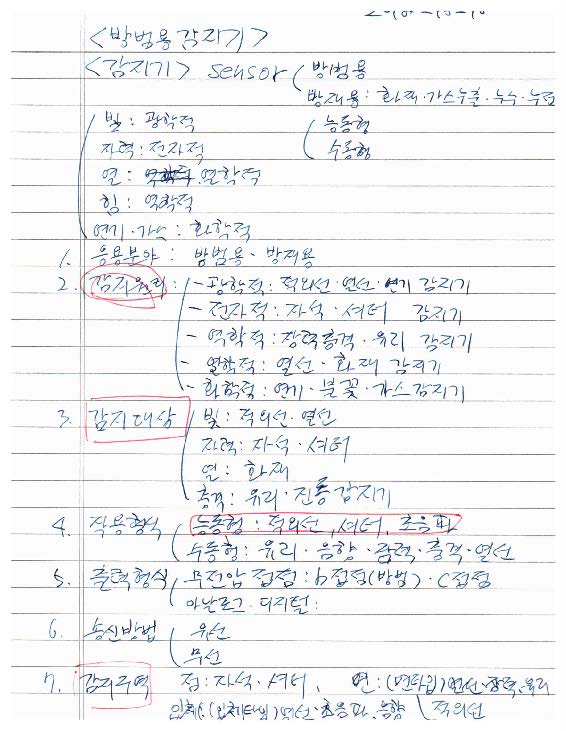 <방범용 감지기>
<감지기> sensor ( 방범용
방재용 : 화재·가스누출·누수·누전
빛 : 광학적 ( 능동형
자력 : 전자적 수동형
열 : 열학적
힘 : 역학적
연기·가스 : 화학적
1. 응용분야 : 방범용·방재용
2. 감지원리 : - 광학적 : 적외선·열선·연기 감지기
- 전자적 : 자석·셔터 감지기
- 역학적 : 장력충격·유리 감지기
- 열학적 : 열선·화재 감지기
- 화학적 : 연기·불꽃·가스감지기
3. 감지대상 빛 : 적외선·열선
자력 : 자석·셔터
열 : 화재
충격 : 유리·진동감지기
4. 작용형식 능동형 : 적외선, 셔터, 초음파
수동형 : 유리·음향·장력·충격·열선
5. 출력형식 무전압 접점 : b접점(방범)·C접점
아날로그·디지털 :
6. 송신방법 유선
무선
7. 감지구역 점 : 자석·셔터, 면 : (면타입)열선·장력·유리
입체 : (입체타입)열선·초음파·음향 적외선